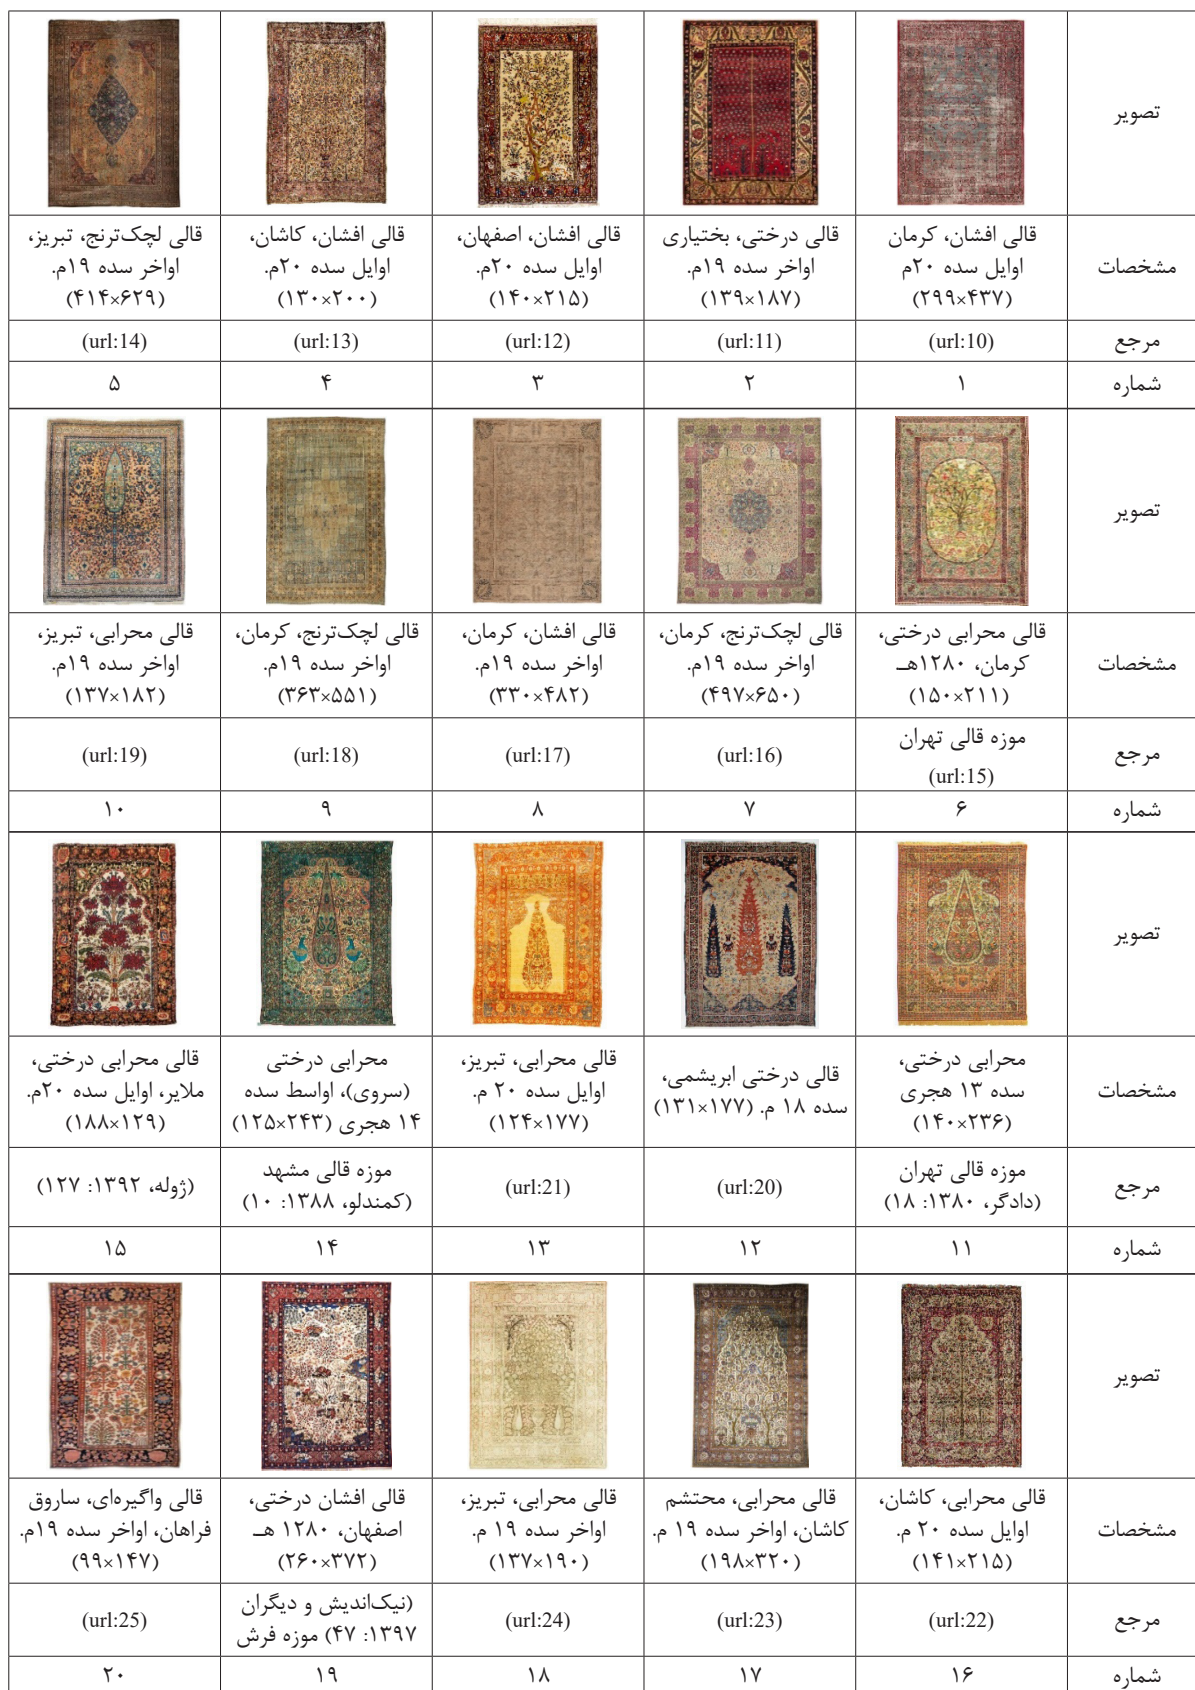 تصویر
مشخصات
قالی افشان، کرمان
اوایل سده ۲۰م
(۲۹۹×۴۳۷)
قالی درختی، بختیاری
اواخر سده ۱۹م.
(۱۳۹×۱۸۷)
قالی افشان، اصفهان،
اوایل سده ۲۰م.
(۱۴۰×۲۱۵)
قالی افشان، کاشان،
اوایل سده ۲۰م.
(۱۳۰×۲۰۰)
قالی لچک‌ترنج، تبریز،
اواخر سده ۱۹م.
(۴۱۴×۶۲۹)
مرجع
(url:10)
(url:11)
(url:12)
(url:13)
(url:14)
شماره
۱
۲
۳
۴
۵
تصویر
مشخصات
قالی محرابی درختی،
کرمان، ۱۲۸۰هـ
(۱۵۰×۲۱۱)
قالی لچک‌ترنج، کرمان،
اواخر سده ۱۹م.
(۴۹۷×۶۵۰)
قالی افشان، کرمان،
اواخر سده ۱۹م.
(۳۳۰×۴۸۲)
قالی لچک‌ترنج، کرمان،
اواخر سده ۱۹م.
(۳۶۳×۵۵۱)
قالی محرابی، تبریز،
اواخر سده ۱۹م.
(۱۳۷×۱۸۲)
مرجع
موزه قالی تهران
(url:15)
(url:16)
(url:17)
(url:18)
(url:19)
شماره
۶
۷
۸
۹
۱۰
تصویر
مشخصات
محرابی درختی،
سده ۱۳ هجری
(۱۴۰×۲۳۶)
قالی درختی ابریشمی،
سده ۱۸ م. (۱۷۷×۱۳۱)
قالی محرابی، تبریز،
اوایل سده ۲۰ م.
(۱۲۴×۱۷۷)
محرابی درختی
(سروی)، اواسط سده
۱۴ هجری (۲۴۳×۱۲۵)
قالی محرابی درختی،
ملایر، اوایل سده ۲۰م.
(۱۸۸×۱۲۹)
مرجع
موزه قالی تهران
(دادگر، ۱۳۸۰: ۱۸)
(url:20)
(url:21)
موزه قالی مشهد
(کمندلو، ۱۳۸۸: ۱۰)
(ژوله، ۱۳۹۲: ۱۲۷)
شماره
۱۱
۱۲
۱۳
۱۴
۱۵
تصویر
مشخصات
قالی محرابی، کاشان،
اوایل سده ۲۰ م.
(۱۴۱×۲۱۵)
قالی محرابی، محتشم
کاشان، اواخر سده ۱۹ م.
(۱۹۸×۳۲۰)
قالی محرابی، تبریز،
اواخر سده ۱۹ م.
(۱۳۷×۱۹۰)
قالی افشان درختی،
اصفهان، ۱۲۸۰ هـ
(۲۶۰×۳۷۲)
قالی واگیره‌ای، ساروق
فراهان، اواخر سده ۱۹م.
(۹۹×۱۴۷)
مرجع
(url:22)
(url:23)
(url:24)
(نیک‌اندیش و دیگران
۱۳۹۷: ۴۷) موزه فرش
(url:25)
شماره
۱۶
۱۷
۱۸
۱۹
۲۰